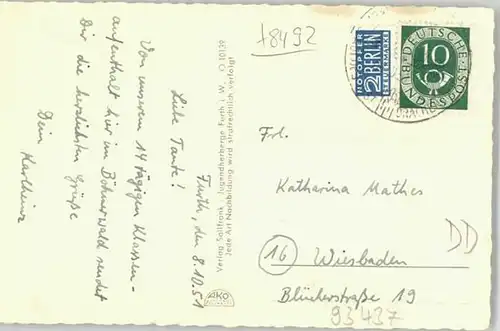 Furth, den 8.10.51
Liebe Tante!
Von unserem 14 tägigen Klassen-
aufenthalt hier im Böhmerwald sendet
Dir die herzlichsten Grüße
Dein Karlheinz
Verlag Stollfrank, Jugendherberge Furth i. W. O 10139
Jede Art Nachbildung wird strafrechtlich verfolgt
AKO
+8492
NOTOPFER
2 BERLIN
STEUERMARKE
10
DEUTSCHE
BUNDESPOST
Frl.
Katharina Mathes
16 Wiesbaden
Blücherstraße 19
DD
93437